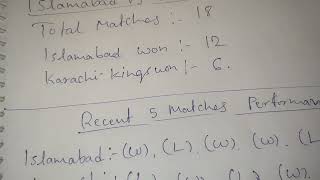 Islamabad vs
Total Matches :- 18
Islamabad won :- 12
Karachi-kings won :- 6.
Recent 5 Matches Performan
Islamabad :- (W), (L), (W), (W), (L